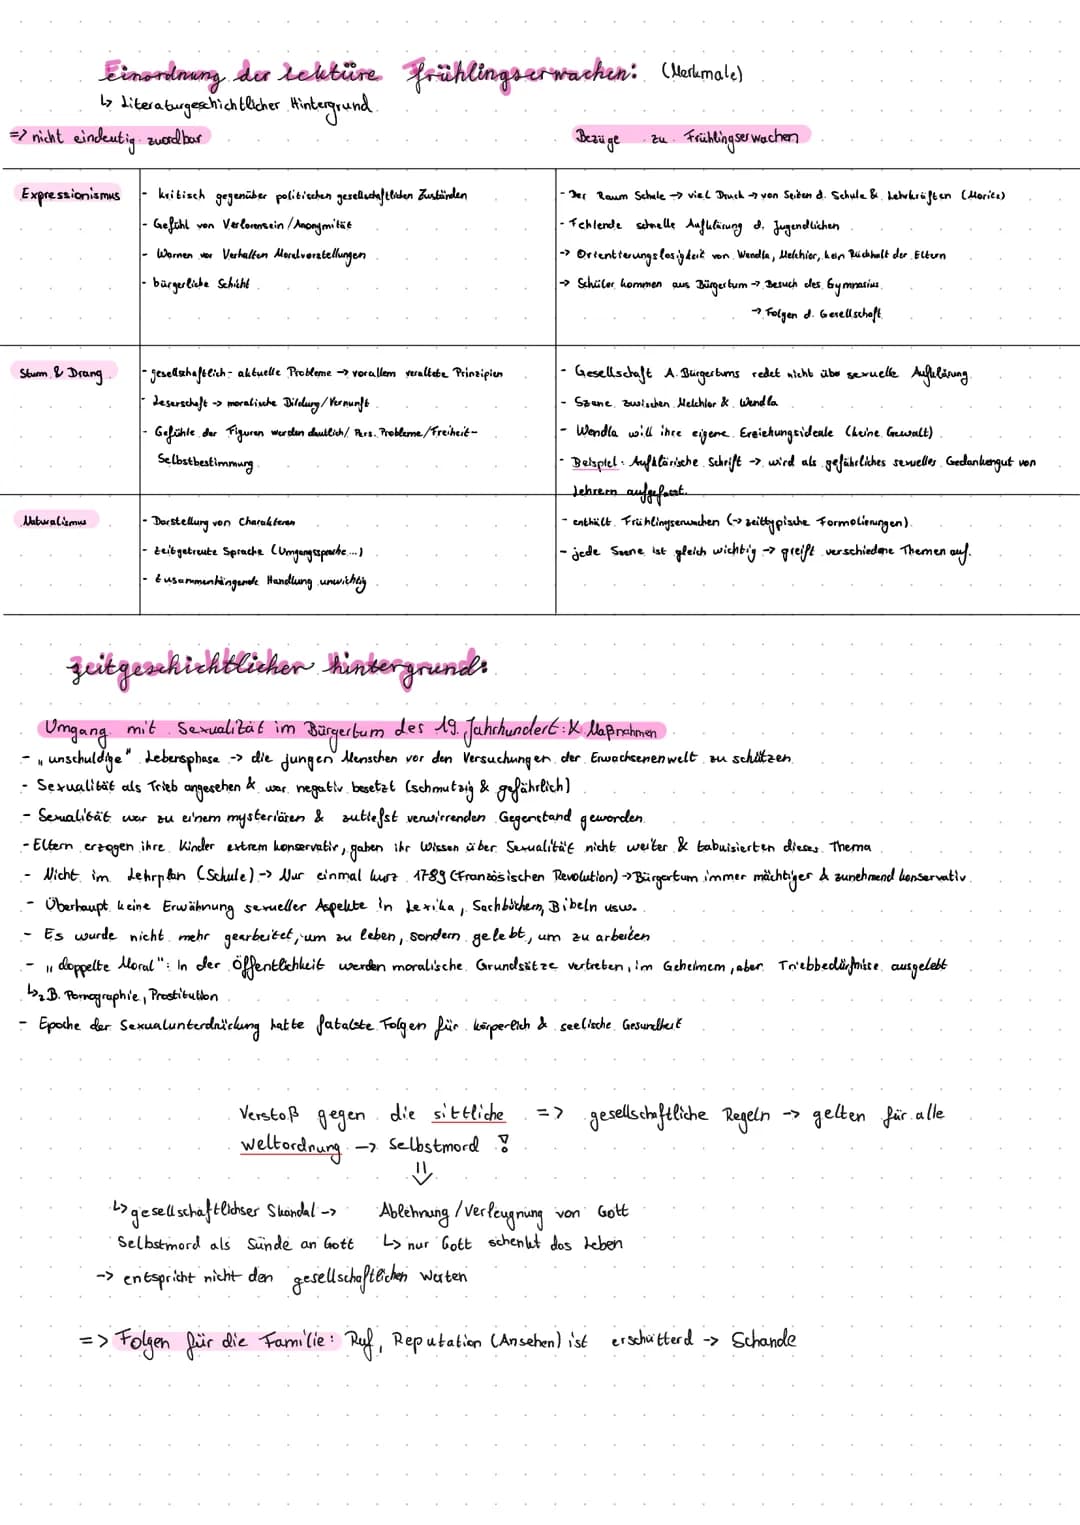 Einordnung der Lektüre Frühlingserwachen: (Merkmale)
↳ Literaturgeschichtlicher Hintergrund
=> nicht eindeutig zuordbar
Bezüge zu Frühlingserwachen
Expressionismus
- kritisch gegenüber politischen gesellschaftlichen Zuständen
- Gefühl von Verlorensein/Anonymität
- Warnen vor Verhalten Moralvorstellungen
- bürgerliche Schicht
- Der Raum Schule -> viel Druck -> von Seiten d. Schule & Lehrkräften (Moritz)
- Fehlende schnelle Aufklärung d. Jugendlichen
-> Orientierungslosigkeit von Wendla, Melchior, kein Rückhalt der Eltern
-> Schüler kommen aus Bürgertum -> Besuch des Gymnasius
-> Folgen d. Gesellschaft
Sturm & Drang
- gesellschaftlich- aktuelle Probleme -> vorallem veraltete Prinzipien
- Leserschaft -> moralische Bildung/Vernunft
- Gefühle der Figuren werden deutlich/ Pers. Probleme/Freiheit-
Selbstbestimmung
- Gesellschaft A. Bürgertums redet nicht über sexuelle Aufklärung
- Szene zwischen Melchior & Wendla
- Wendla will ihre eigene Erziehungsideale (keine Gewalt)
- Beispiel: Aufklärische Schrift -> wird als gefährliches sexuelles Gedankengut von
Lehrern aufgefasst.
Naturalismus
- Darstellung von Charakteren
- zeitgetreute Sprache (Umgangssprache...)
- zusammenhängende Handlung unwichtig
- enthält Frühlingserwachen (-> zeittypische Formolierungen)
- jede Szene ist gleich wichtig -> greift verschiedene Themen auf.
zeitgeschichtlicher hintergrund:
Umgang mit Sexualität im Bürgertum des 19. Jahrhundert: & Maßnahmen
- "unschuldige" Lebensphase -> die jungen Menschen vor den Versuchungen der Erwachsenenwelt zu schützen
- Sexualität als Trieb angesehen & war negativ besetzt (schmutzig & gefährlich)
- Sexualität war zu einem mysteriären & zutiefst verwirrenden Gegenstand geworden
- Eltern erzogen ihre Kinder extrem konservativ, gaben ihr Wissen über Sexualität nicht weiter & tabuisierten dieses Thema
- Nicht im Lehrplan (Schule) -> Nur einmal kurz 1789 (Französischen Revolution) -> Bürgertum immer mächtiger & zunehmend konservativ
- Überhaupt keine Erwähnung sexueller Aspekte in Lexika, Sachbüchern, Bibeln usw.
- Es wurde nicht mehr gearbeitet, um zu leben, sondern gelebt, um zu arbeiten
- "doppelte Moral": In der Öffentlichkeit werden moralische Grundsätze vertreten, im Geheimem, aber Triebbedürfnisse ausgelebt
↳ z.B. Pornographie, Prostitution
- Epoche der Sexualunterdrückung hatte fatalste Folgen für körperlich & seelische Gesundheit
Verstoß gegen die sittliche => gesellschaftliche Regeln -> gelten für alle
weltordnung -> Selbstmord !
↳ gesellschaftlichser Skandal -> Ablehnung/Verleugnung von Gott
Selbstmord als Sünde an Gott ↳ nur Gott schenkt das Leben
-> entspricht nicht den gesellschaftlichen Werten
=> Folgen für die Familie: Ruf, Reputation (Ansehen) ist erschütterd -> Schande